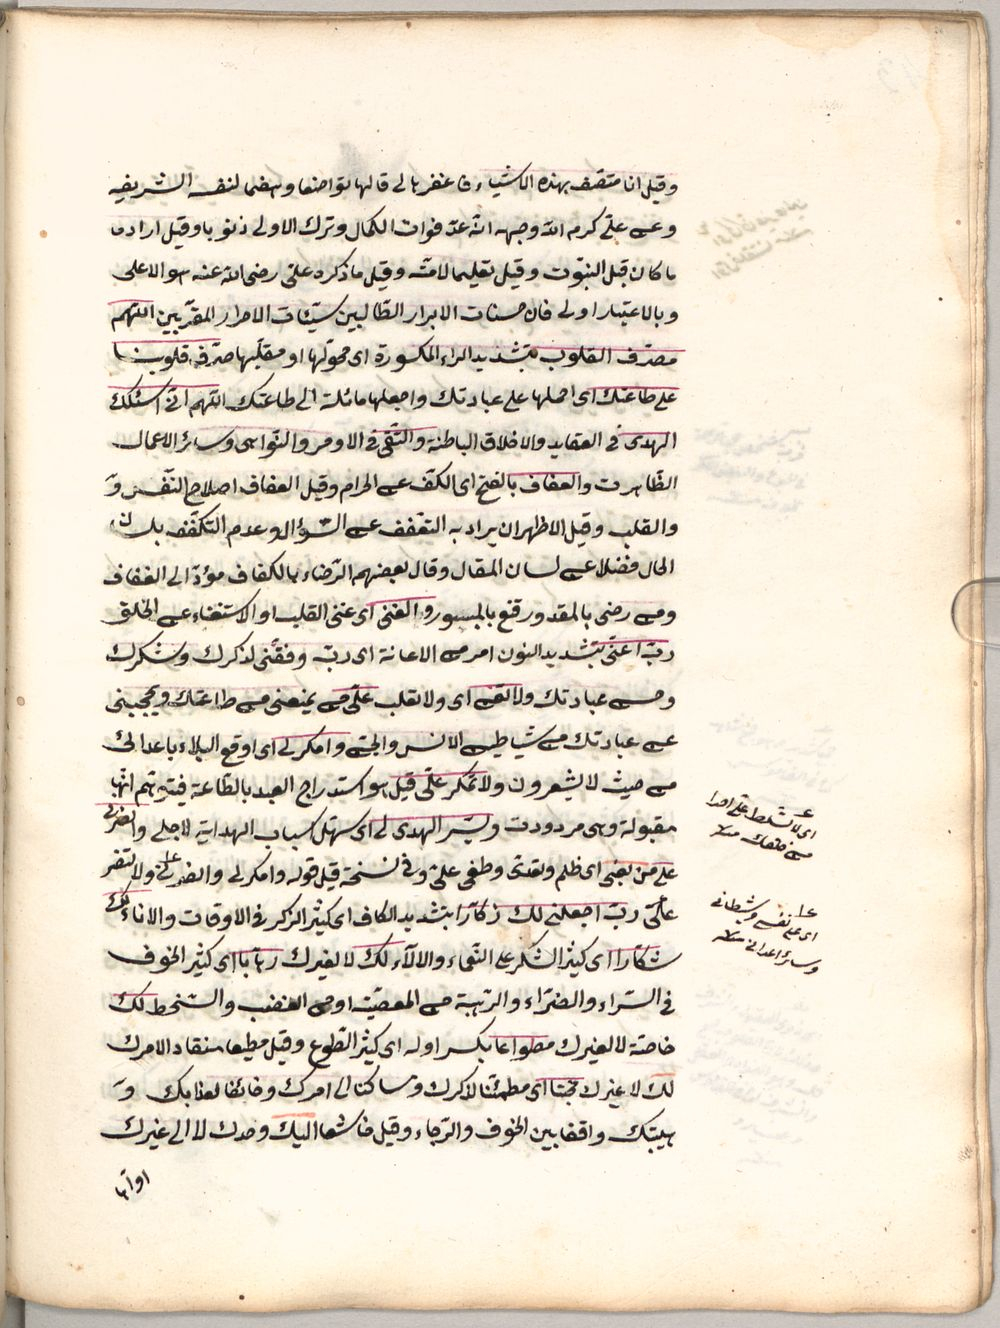 وقيل انا متصف بهذه الاشياء فاغفرها لي قالها تواضعا وهضما لنفسه الشريفه
وعن علي كرم الله وجهه انه عد فوات الكمال وترك الاولى ذنوبا وقيل اراد ما
ما كان قبل النبوت وقيل تعليما لامته وقيل ما ذكره علي رضى الله عنه هو الاعلى
وبالاعتبار اولى فان حسنات الابرار الطالبين سيئات الاحرار المقربين اللهم
مصرف القلوب بتشديد الراء المكسورة اى محولها او مقلبها صرف قلوبنا
على طاعتك اى احملها على عبادتك واجعلها مائلة الى طاعتك اللهم انى اسئلك
الهدى فى العقايد والاخلاق الباطنة والتقى فى الاومر والنواهى وسائر الاعمال
الظاهرت والعفاف بالفتح اى الكف عن الحرام وقيل العفاف اصلاح النفس و
والقلب وقيل الاظهر ان يراد به التعفف عن السؤال وعدم التكفف بلسان
الحال فضلا عن لسان المقال وقال بعضهم الرضاء بالكفاف مؤد الى العفاف
ومن رضى بالمقدور قنع بالميسور والغنى اى غنى القلب او الاستغناء عن الخلق
رب اعنى بتشديد النون امر من الاعانة اى رب وفقنى لذكرك وشكرك
وحسن عبادتك ولا تعن اى ولا تغلب على من يمنعنى من طاعتك ويحجبنى
عن عبادتك من شياطين الانس والجن وامكر لى اى اوقع البلاء باعدائى
من حيث لا يشعرون ولا تمكر على قيل هو استدراج العبد بالطاعة فيتوهم انها
مقبولة وهى مردودت ويسر الهدى لى اى سهل اسباب الهداية لاجلى وانصرنى
على من بغى اى ظلم وتعدى وطغى على وفى نسخة قبل قوله وامكر لى وانصرنى ولا تنصر
على رب اجعلنى لك ذكارا بتشديد الكاف اى كثير الذكر فى الاوقات والاناء لك
شكارا اى كثير الشكر على النعماء والالاء لك لا لغيرك رهابا اى كثير الخوف
فى السراء والضراء والرهبة من المعصية او من الغضب والسخط لك
خاصة لا لغيرك مطواعا بكسر اوله اى كثير الطوع وقيل مطيعا منقادا لامرك
لك لا غيرك مخبتا اى مطمئنا لذكرك وساكنا الى امرك وخائفا لعذابك و
هيبتك واقفا بين الخوف والرجاء وقيل خاشعا اليك وحدك لا الى غيرك
اواها
اى لا تسلط على احدا
من خلقك منلا
اى على نفسى وشيطانى
وسائر اعدائى منلا